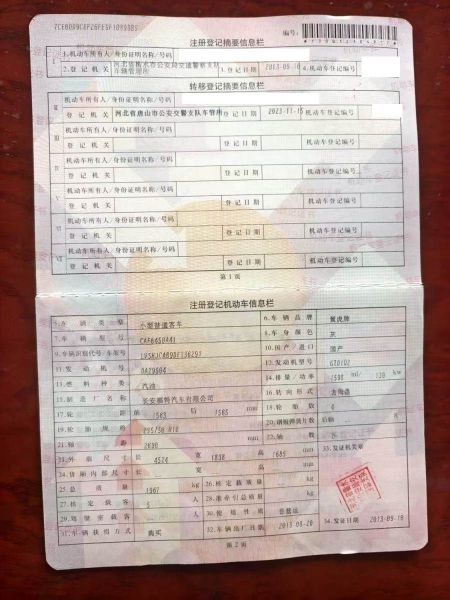 注册登记摘要信息栏
编号:
1.机动车所有人/身份证明名称/号码
2.登记机关 河北省衡水市公安局交通警察支队车辆管理所 3.登记日期 2013-09-18 4.机动车登记编号
转移登记摘要信息栏
机动车所有人/身份证明名称/号码
登记机关 河北省唐山市公安交警支队车管所 登记日期 2023-11-15 机动车登记编号
机动车所有人/身份证明名称/号码
登记机关 登记日期 机动车登记编号
机动车所有人/身份证明名称/号码
登记机关 登记日期 机动车登记编号
机动车所有人/身份证明名称/号码
登记机关 登记日期 机动车登记编号
机动车所有人/身份证明名称/号码
登记机关 登记日期 机动车登记编号
机动车所有人/身份证明名称/号码
登记机关 登记日期 机动车登记编号
第1页
注册登记机动车信息栏
5.车辆类型 小型普通客车 6.车辆品牌 翼虎牌
7.车辆型号 8.车身颜色 灰
9.车辆识别代号/车架号 10.国产/进口 国产
11.发动机号 12.发动机型号
13.燃料种类 汽油 14.排量/功率 ml/ kw
15.制造厂名称 长安福特汽车有限公司 16.转向形式 方向盘
17.轮距 前 1563 后 1565 mm 18.轮胎数 4
19.轮胎规格 20.钢板弹簧片数 后轴 片
21.轴距 2690 mm 22.轴数 2
23.外廓尺寸 长 4524 宽 1838 高 1685 mm 33.发证机关章
24.货厢内部尺寸 长 宽 高 mm
25.总质量 kg 26.核定载质量 kg
27.核定载客 5 人 28.准牵引总质量 kg
29.驾驶室载客 人 30.使用性质 非营运
31.车辆获得方式 购买 32.车辆出厂日期 34.发证日期 2013-09-18
第2页